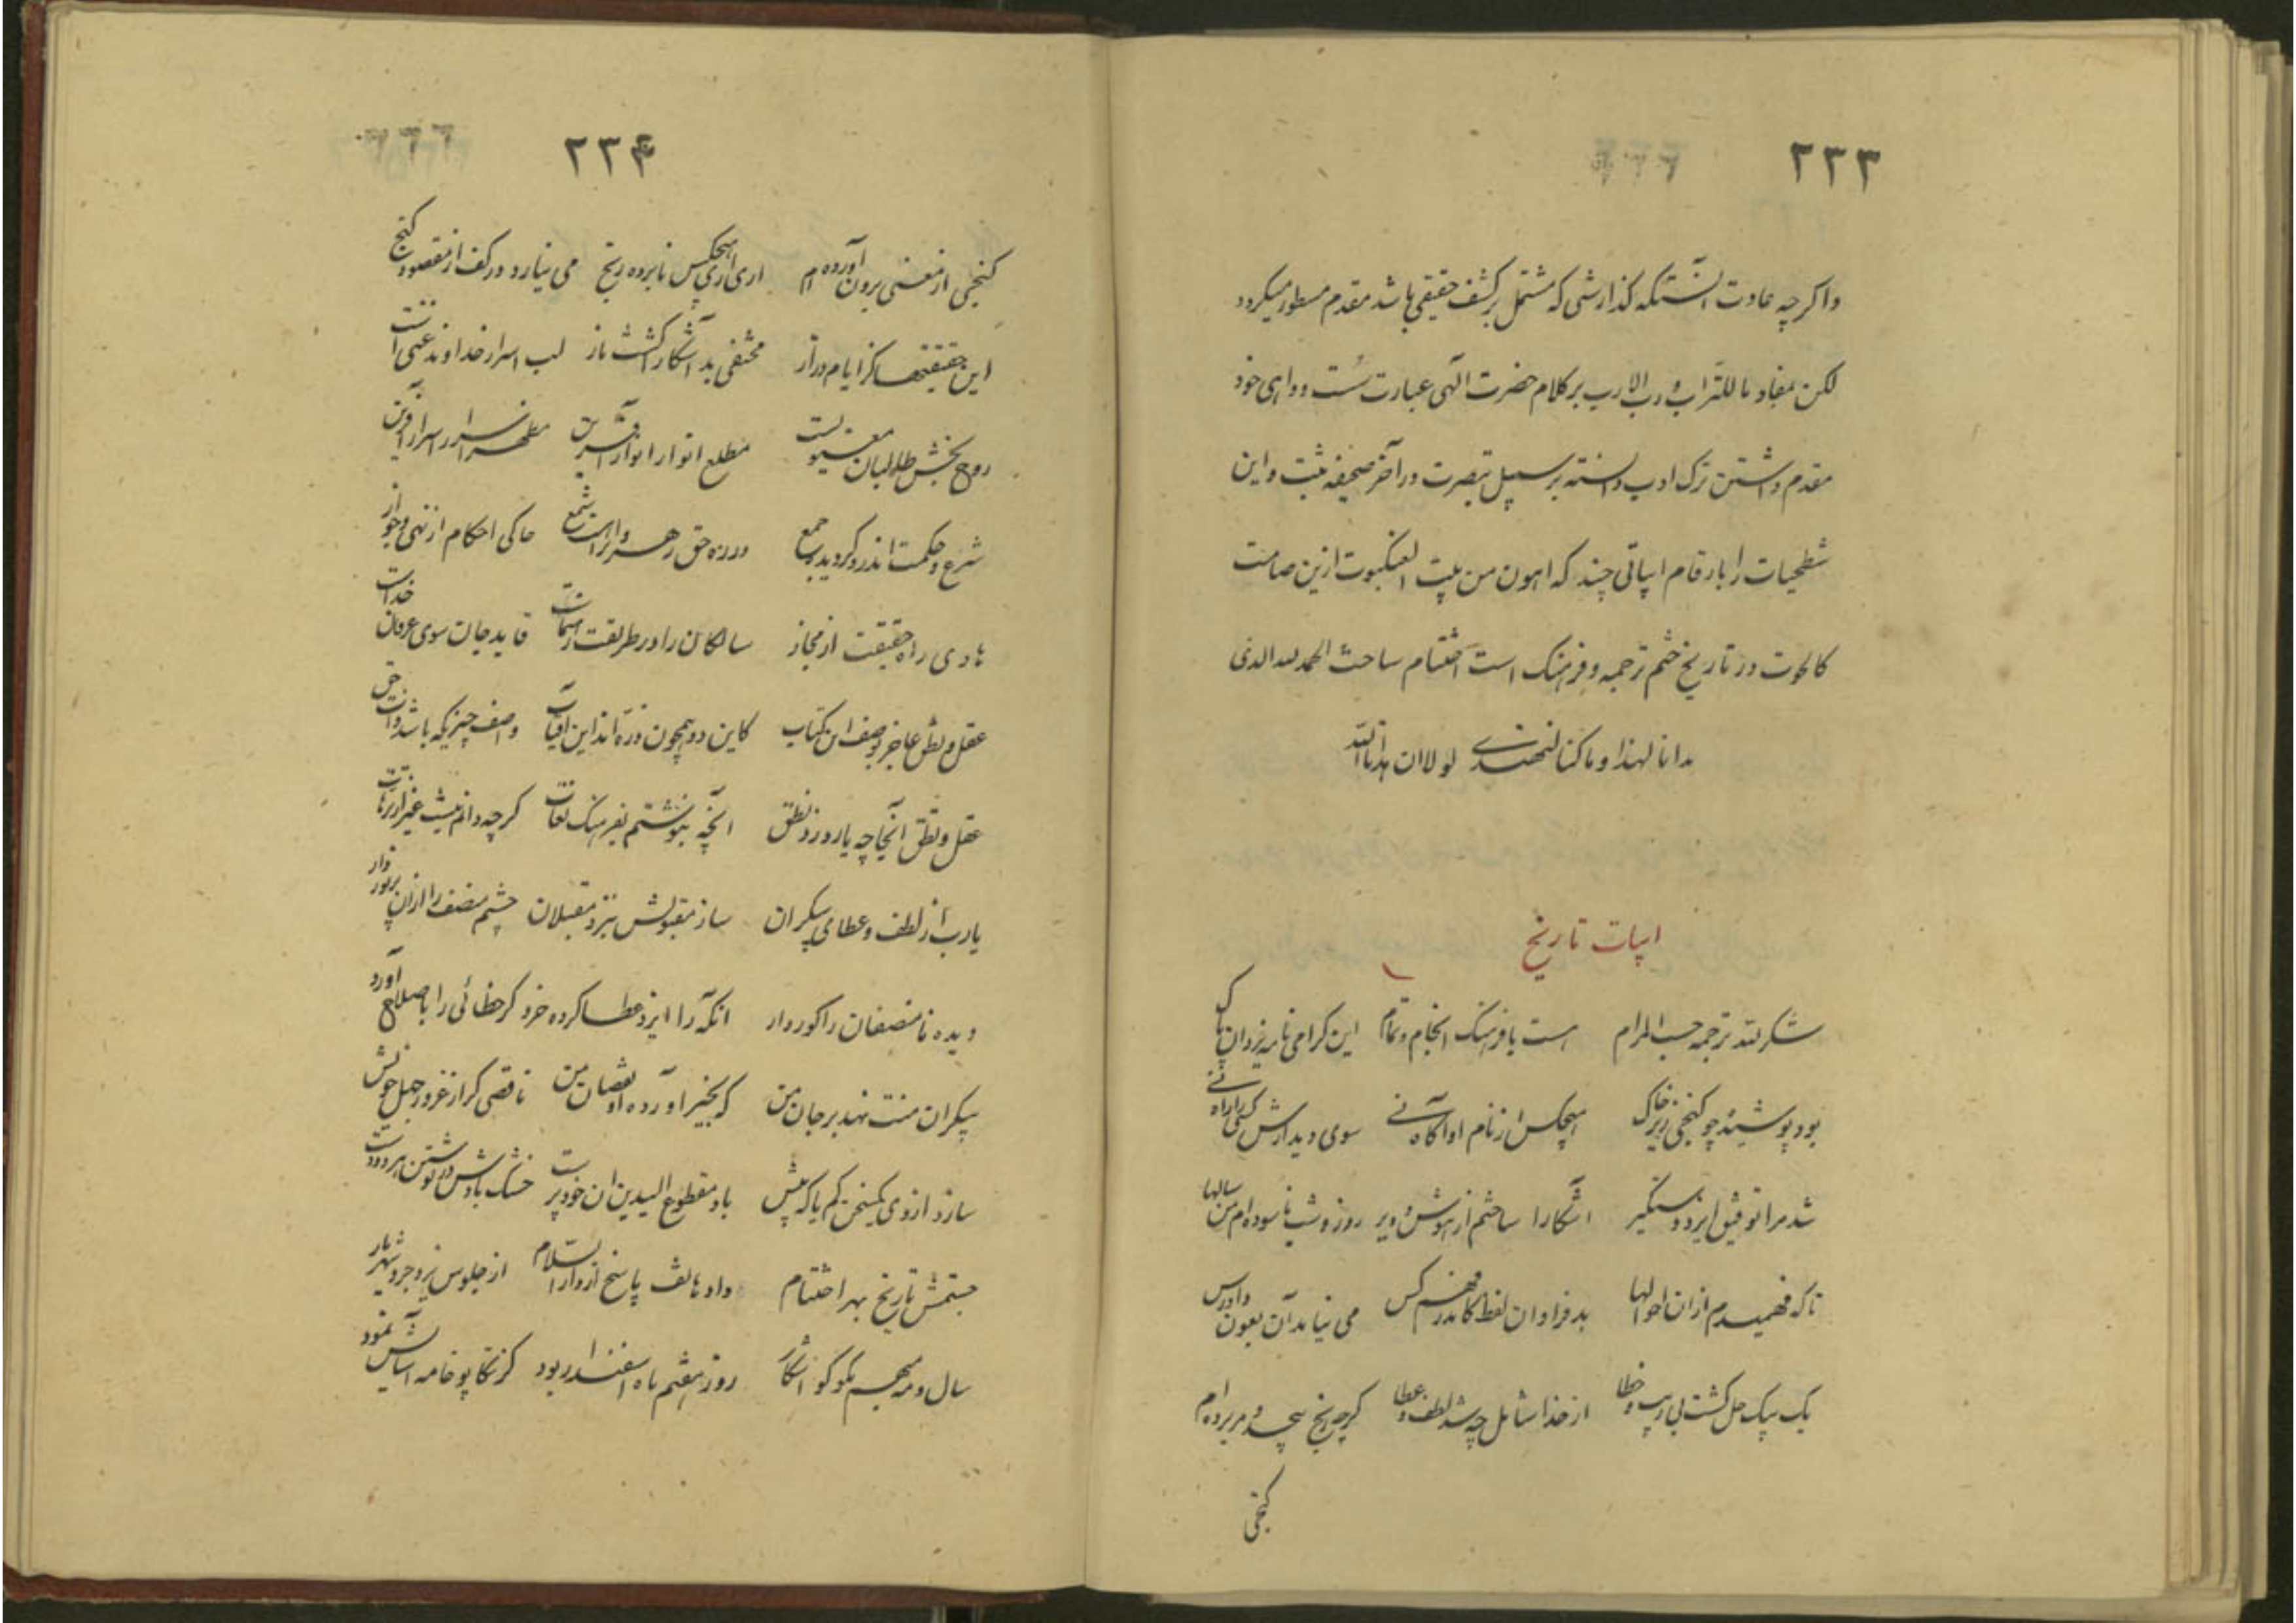 ۲۳۳
واکرچه عادت آنستکه کذارشی که مشتمل بر کشف حقیقی باشد مقدم مسطور میکردد
لکن بمفاد ما للتراب و رب الارباب بر کلام حضرت الهی عبارت سست و واهی خود
مقدم داشتن ترک ادب دانسته بر سبیل تبصرت در آخر صحیفه ثبت و این
شطحیات را بارقام ابیاتی چند که اهون من بیت العنکبوت ازین صامت
کالحوت در تاریخ ختم ترجمه و فرهنک است اختتام ساخت الحمد لله الذی
هدانا لهذا و ما کنا لنهتدی لولا ان هدانا الله
ابیات تاریخ
شکر لله ترجمه حسب المرام است با فرهنک انجام و تمام این کرامی نامه یزدان پاک
بود پوشیده چو کنجی زیر خاک هیچکس از نام او آکاه نی سوی دیدارش کسی را راه نی
شد مرا توفیق ایزد دستکیر آشکارا ساختم از هوش و ویر روز و شب ناسوده ام من سالها
تا که فهمیدم ازان احوالها بد فراوان لفظ کاندر فهم کس می نیاید آن بعون دادرس
یک بیک حل کشت بی ریب و خطا از خدا شامل چه شد لطف و عطا کرچه رنج بیحد و مر برده ام
کنجی
۲۳۴
کنجی از معنی برون آورده ام اری اری هیچکس نابرده رنج می نیارد در کف از مقصود کنج
این حقیقتها کز ایام دراز مختفی بد آشکارا کشت باز لب اسرار خداوند غنی است
روح بخش طالبان معنویست مطلع انوار انوار آفرین مظهر اسرار اسرار آفرین
شرع و حکمت اندرو کردیده جمع در ره حق رهروان راهست شمع حاکی احکام از نهی و جواز
هادی راه حقیقت از مجاز سالکان را در طریقت رهنماست قاید جان سوی عرفان خداست
عقل و نطق عاجز بوصف این کتاب کاین دو همچون ذره اند این آفتاب وصف چیزیکه باشد ذات حق
عقل و نطق آنجا چه یارد زد نطق انچه بنوشتم بفرهنک لغات کرچه دانم نیست غیر از ترهات
یارب از لطف و عطای بیکران ساز مقبولش بنزد مقبلان چشم منصف را ازان پر نور دار
دیده نامنصفان را کور دار انکه را ایزد عطا کرده خرد کر خطائی را باصلاح آورد
بیکران منت نهد بر جان من که بخیر آورده او نقصان من ناقصی کر از غرور جهل خویش
سازد از وی یکسخن کم یا که بیش باد مقطوع الیدین ان خود پرست خشک بادش در نوشتن هر دو دست
جستمش تاریخ بهر اختتام داد هاتف پاسخ از دار السلام از جلوس یزدجرد شهریار
سال و مه بکو کو آشکار روز هفتم ماه اسفندار بود کز تکاپو خامه آسایش نمود